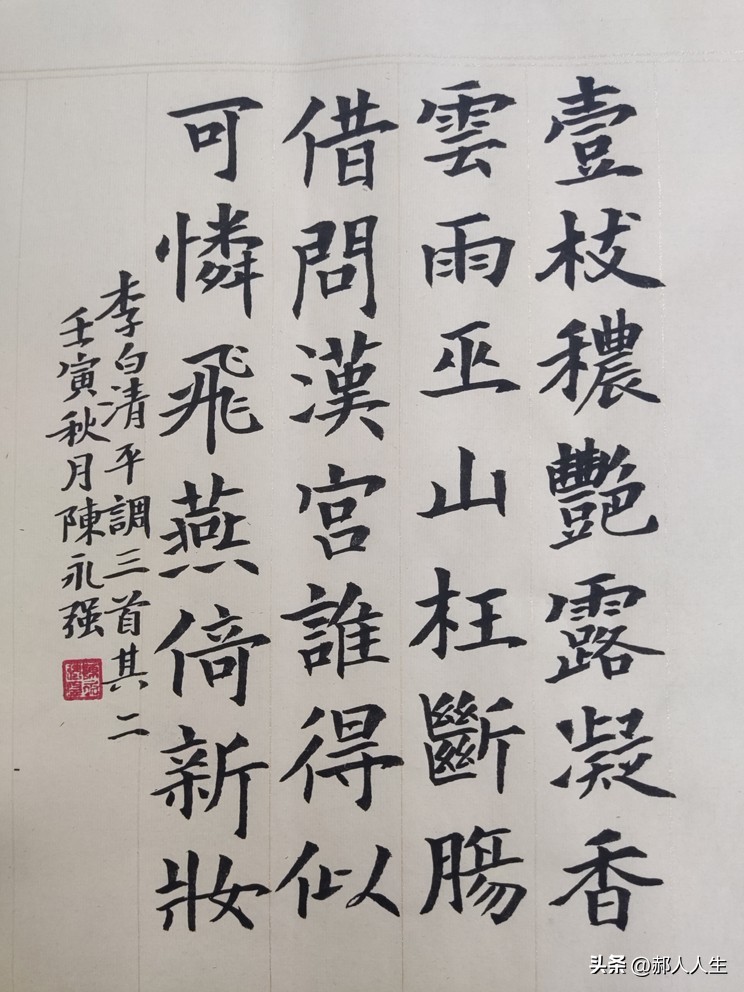 壹枝穠艷露凝香
雲雨巫山枉斷腸
借問漢宮誰得似
可憐飛燕倚新妝
李白清平調三首其二
壬寅秋月陳永强
头条 @郝人人生